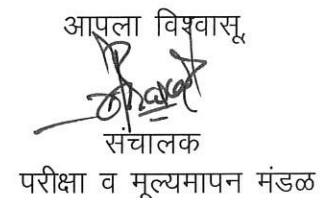 आपला विश्वासू,
संचालक
परीक्षा व मूल्यमापन मंडळ